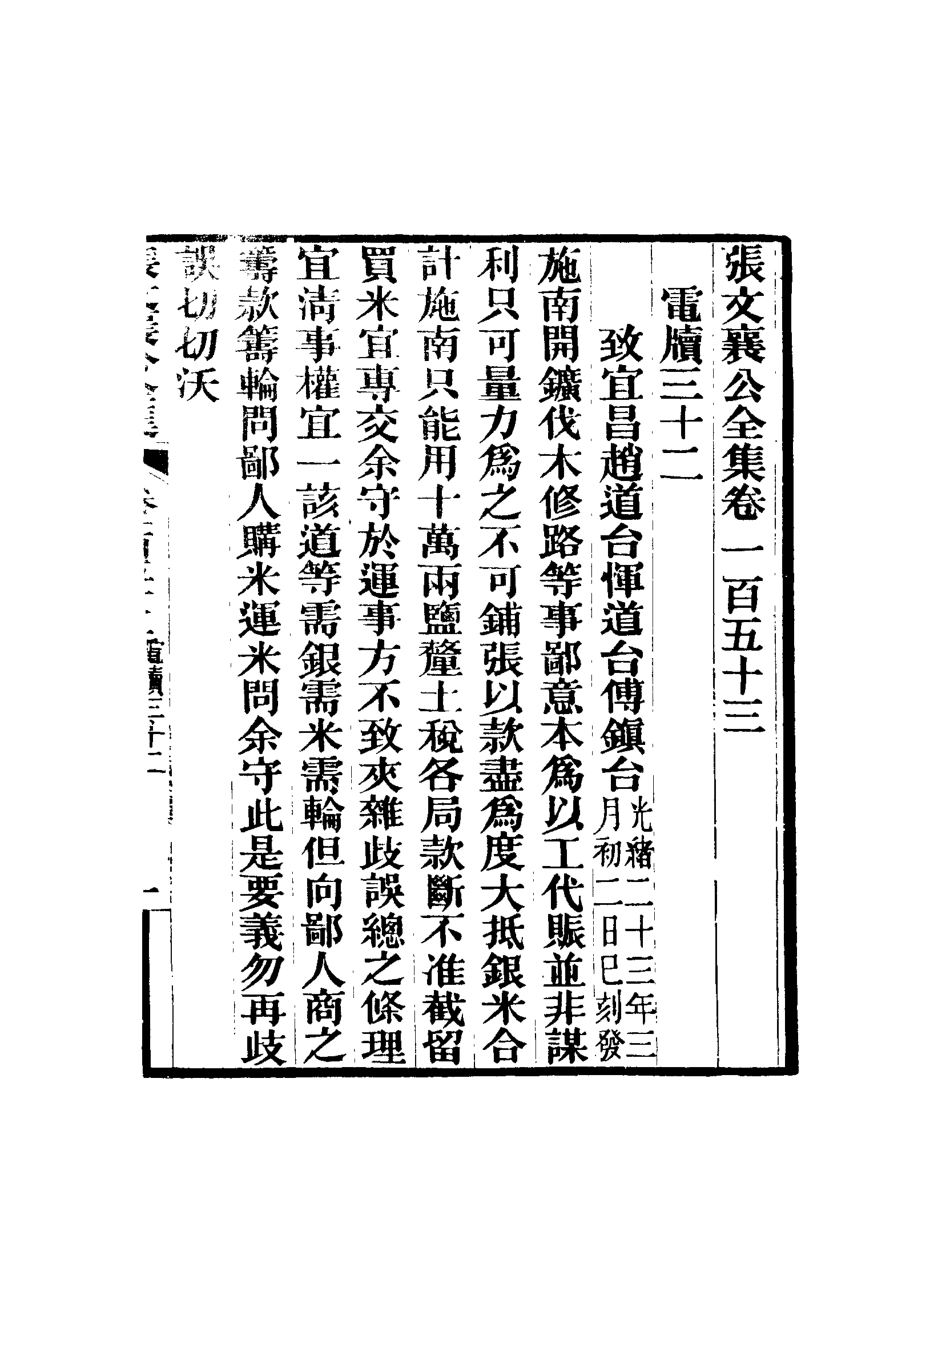 張文襄公全集卷一百五十三
電牘三十二
致宜昌趙道台惲道台傅鎮台光緒二十三年三
月初二日巳刻發
施南開鑛伐木修路等事鄙意本爲以工代賑並非謀
利只可量力爲之不可鋪張以款盡爲度大抵銀米合
計施南只能用十萬兩鹽釐土稅各局款斷不准截留
買米宜專交余守於運事方不致夾雜歧誤總之條理
宜清事權宜一該道等需銀需米需輪但向鄙人商之
籌款籌輪問鄙人購米運米問余守此是要義勿再歧
誤切切沃
電牘三十二
一